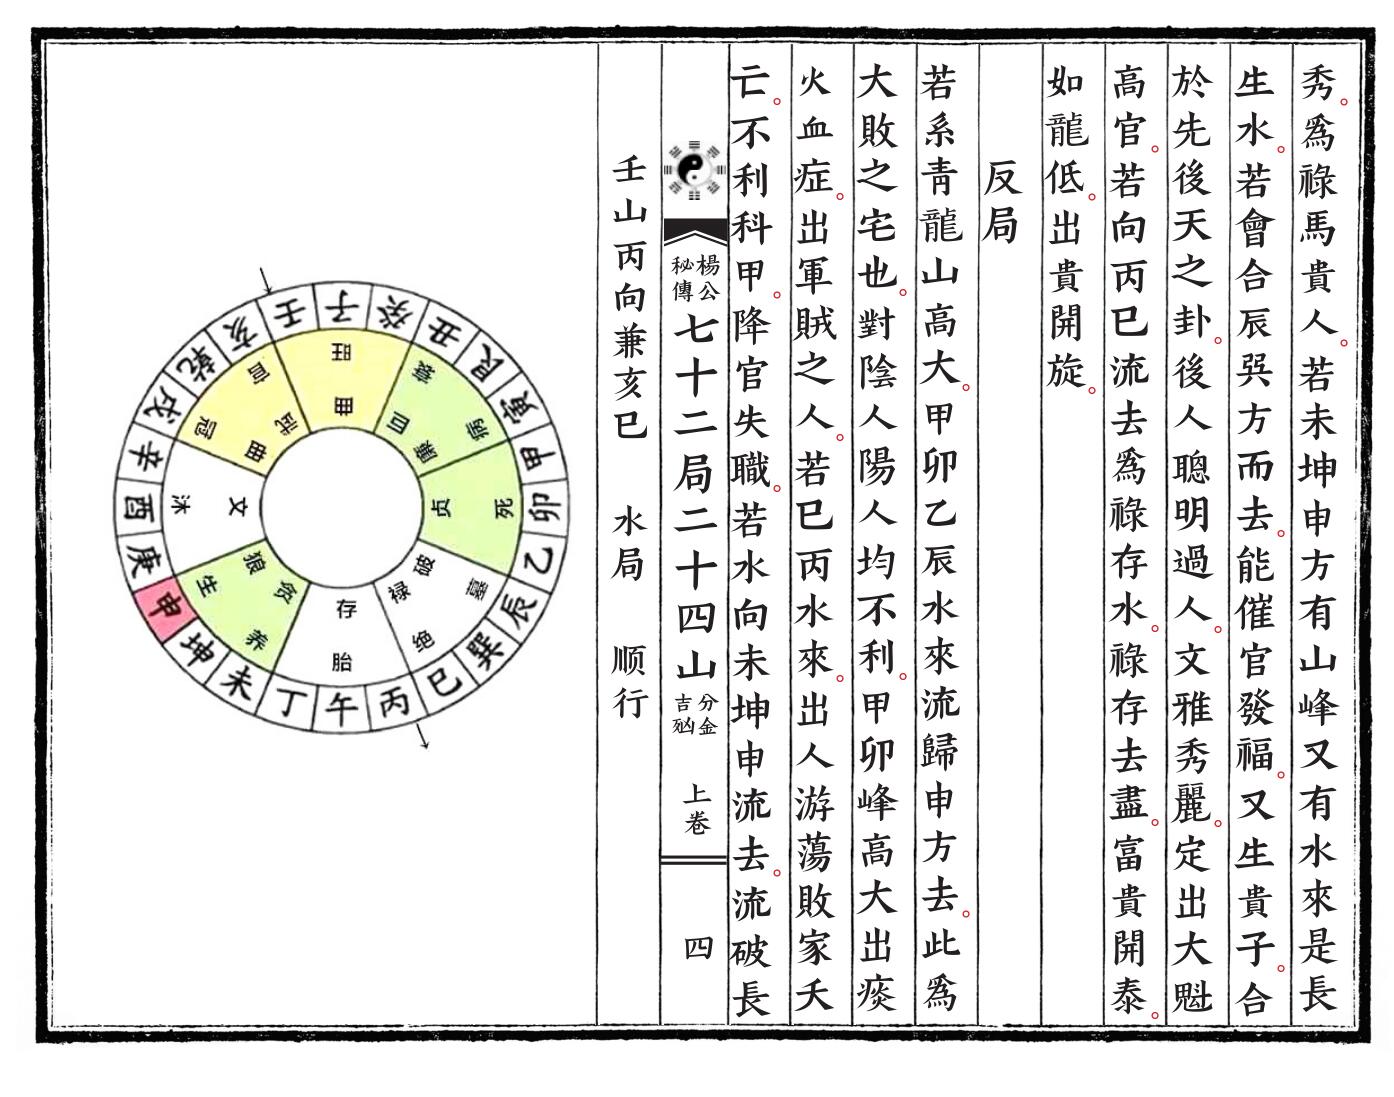 秀。爲祿馬貴人。若未坤申方有山峰又有水來是長
生水。若會合辰巽方而去。能催官發福。又生貴子。合
於先後天之卦。後人聰明過人。文雅秀麗。定出大魁
高官。若向丙巳流去爲祿存水。祿存去盡。富貴開泰。
如龍低。出貴開旋。
反局
若系青龍山高大。甲卯乙辰水來流歸申方去。此爲
大敗之宅也。對陰人陽人均不利。甲卯峰高大出痰
火血症。出軍賊之人。若巳丙水來。出人游蕩敗家夭
亡。不利科甲。降官失職。若水向未坤申流去。流破長
楊公
秘傳
七十二局二十四山
分金
吉
上卷
四
壬山丙向兼亥巳 水局 顺行
壬子癸丑艮寅甲卯乙辰巽巳丙午丁未坤申庚酉辛戌乾亥
旺 衰 病 死 墓 绝 胎 养 生 沐 冠 官
曲 巨 廉 贞 破 禄 存 贪 狼 文 曲 武